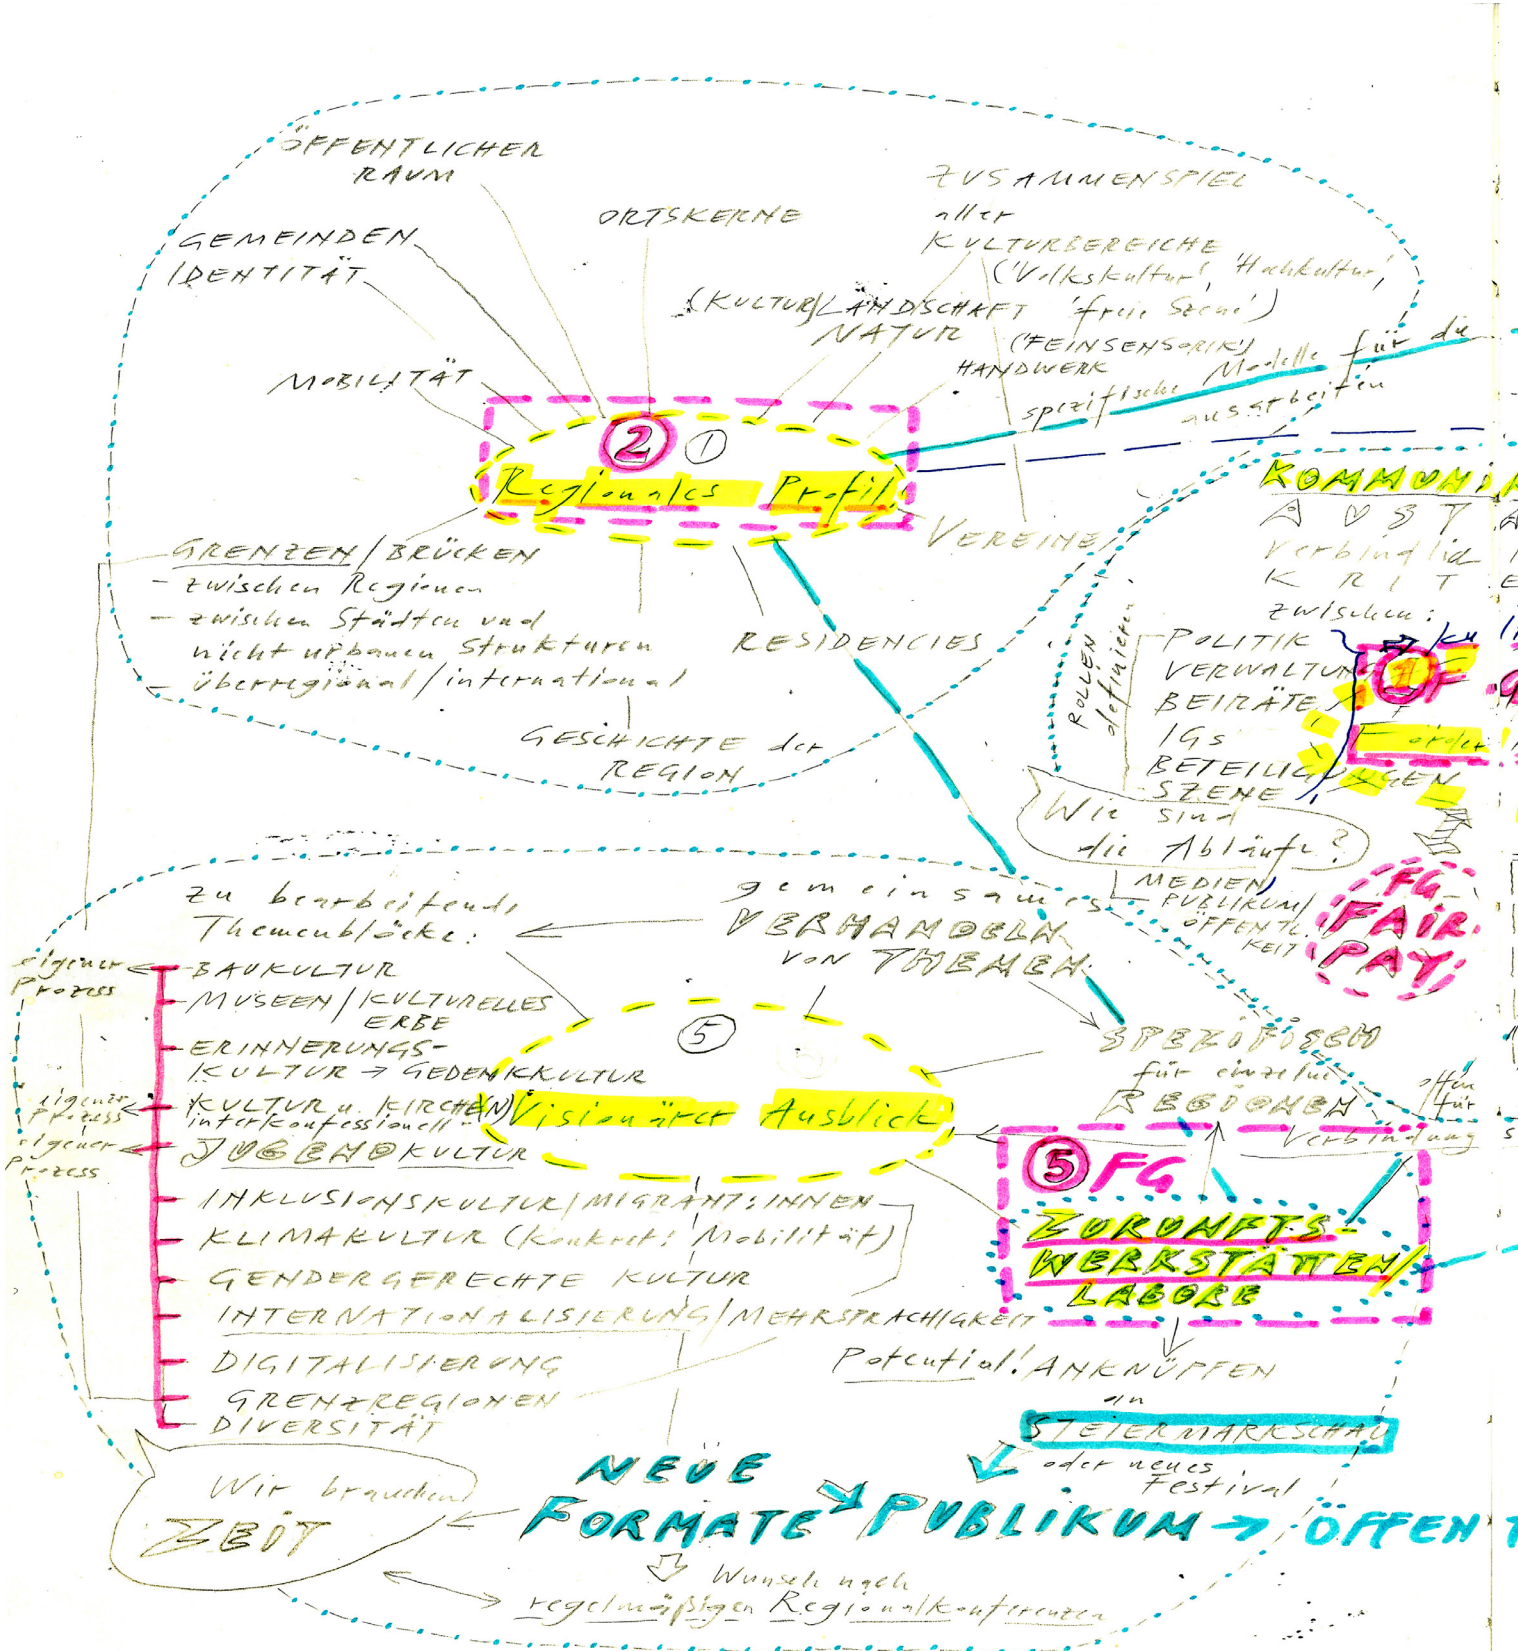 ÖFFENTLICHER
RAUM
GEMEINDEN
IDENTITÄT
ORTSKERNE
ZUSAMMENSPIEL
aller
KULTURBEREICHE
('Volkskultur', 'Hochkultur',
'freie Szene')
(KULTUR)LANDSCHAFT
NATUR
('FEINSENSORIK')
HANDWERK
MOBILITÄT
spezifische Modelle für die
ausarbeiten
2 1
Regionales Profil
VEREINE
GRENZEN/BRÜCKEN
- zwischen Regionen
- zwischen Städten und
nicht urbanen Strukturen
- überregional/international
RESIDENCIES
GESCHICHTE der
REGION
KOMMUNI
AUSTA
Verbindlic
KRITE
zwischen:
ROLLEN
definieren
POLITIK
VERWALTUNG
BEIRÄTE
IGs
BETEILIGUNGEN
SZENE
Förder
Wie sind
die Abläufe?
MEDIEN
PUBLIKUM/
ÖFFENTL.
KEIT
FG
FAIR
PAY
zu bearbeitende
Themenblöcke:
gemeinsames
VERHANDELN
VON THEMEN
eigener
Prozess
BAUKULTUR
MUSEEN/KULTURELLES
ERBE
ERINNERUNGS-
KULTUR → GEDENKKULTUR
eigener
Prozess
KULTUR u. KIRCHE(N)
interkonfessionell
eigener
Prozess
JUGENDKULTUR
INKLUSIONSKULTUR/MIGRANT:INNEN
KLIMAKULTUR (konkret: Mobilität)
GENDERGERECHTE KULTUR
INTERNATIONALISIERUNG/MEHRSPRACHIGKEIT
DIGITALISIERUNG
GRENZREGIONEN
DIVERSITÄT
5
Visionärer Ausblick
SPEZIFISCH
für einzelne
REGIONEN
offen
für
Verbindung
5 FG
ZUKUNFTS-
WERKSTÄTTEN/
LABORE
Potential! ANKNÜPFEN
an
STEIERMARKSCHAU
oder neues
Festival
Wir brauchen
ZEIT
NEUE
FORMATE → PUBLIKUM → ÖFFENT
Wunsch nach
regelmäßigen Regionalkonferenzen